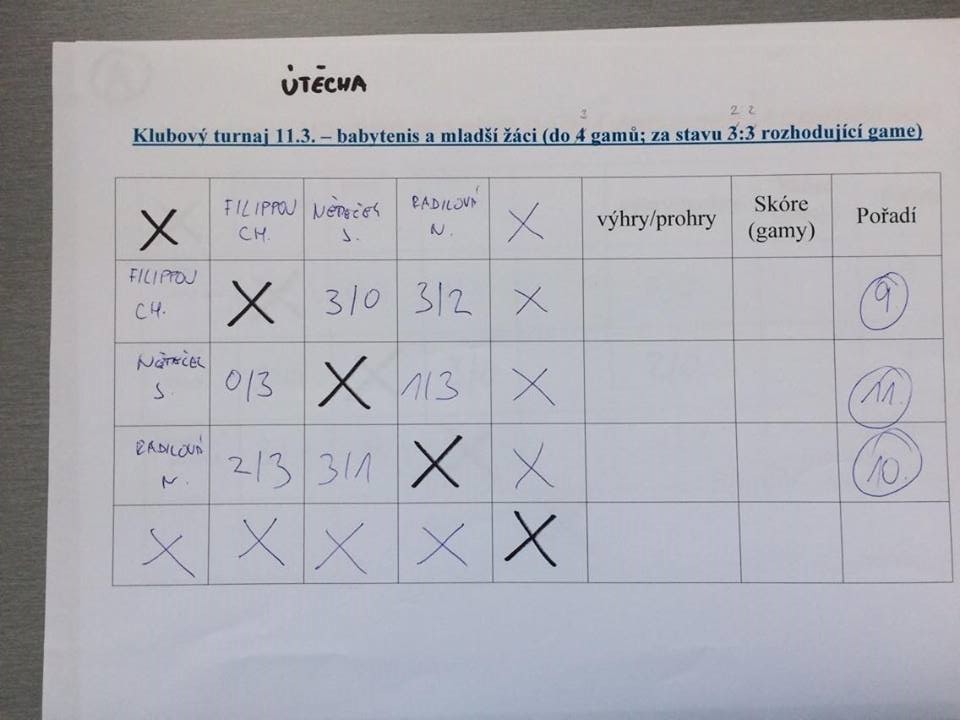 ÚTĚCHA
3 2 2
Klubový turnaj 11.3. – babytenis a mladší žáci (do 4 gamů; za stavu 3:3 rozhodující game)
X FILIPPOU CH. NĚTEČEK S. RADILOVÁ N. X výhry/prohry Skóre (gamy) Pořadí
FILIPPOU CH. X 3/0 3/2 X 9.
NĚTEČEK S. 0/3 X 1/3 X 11.
RADILOVÁ N. 2/3 3/1 X X 10.
X X X X X